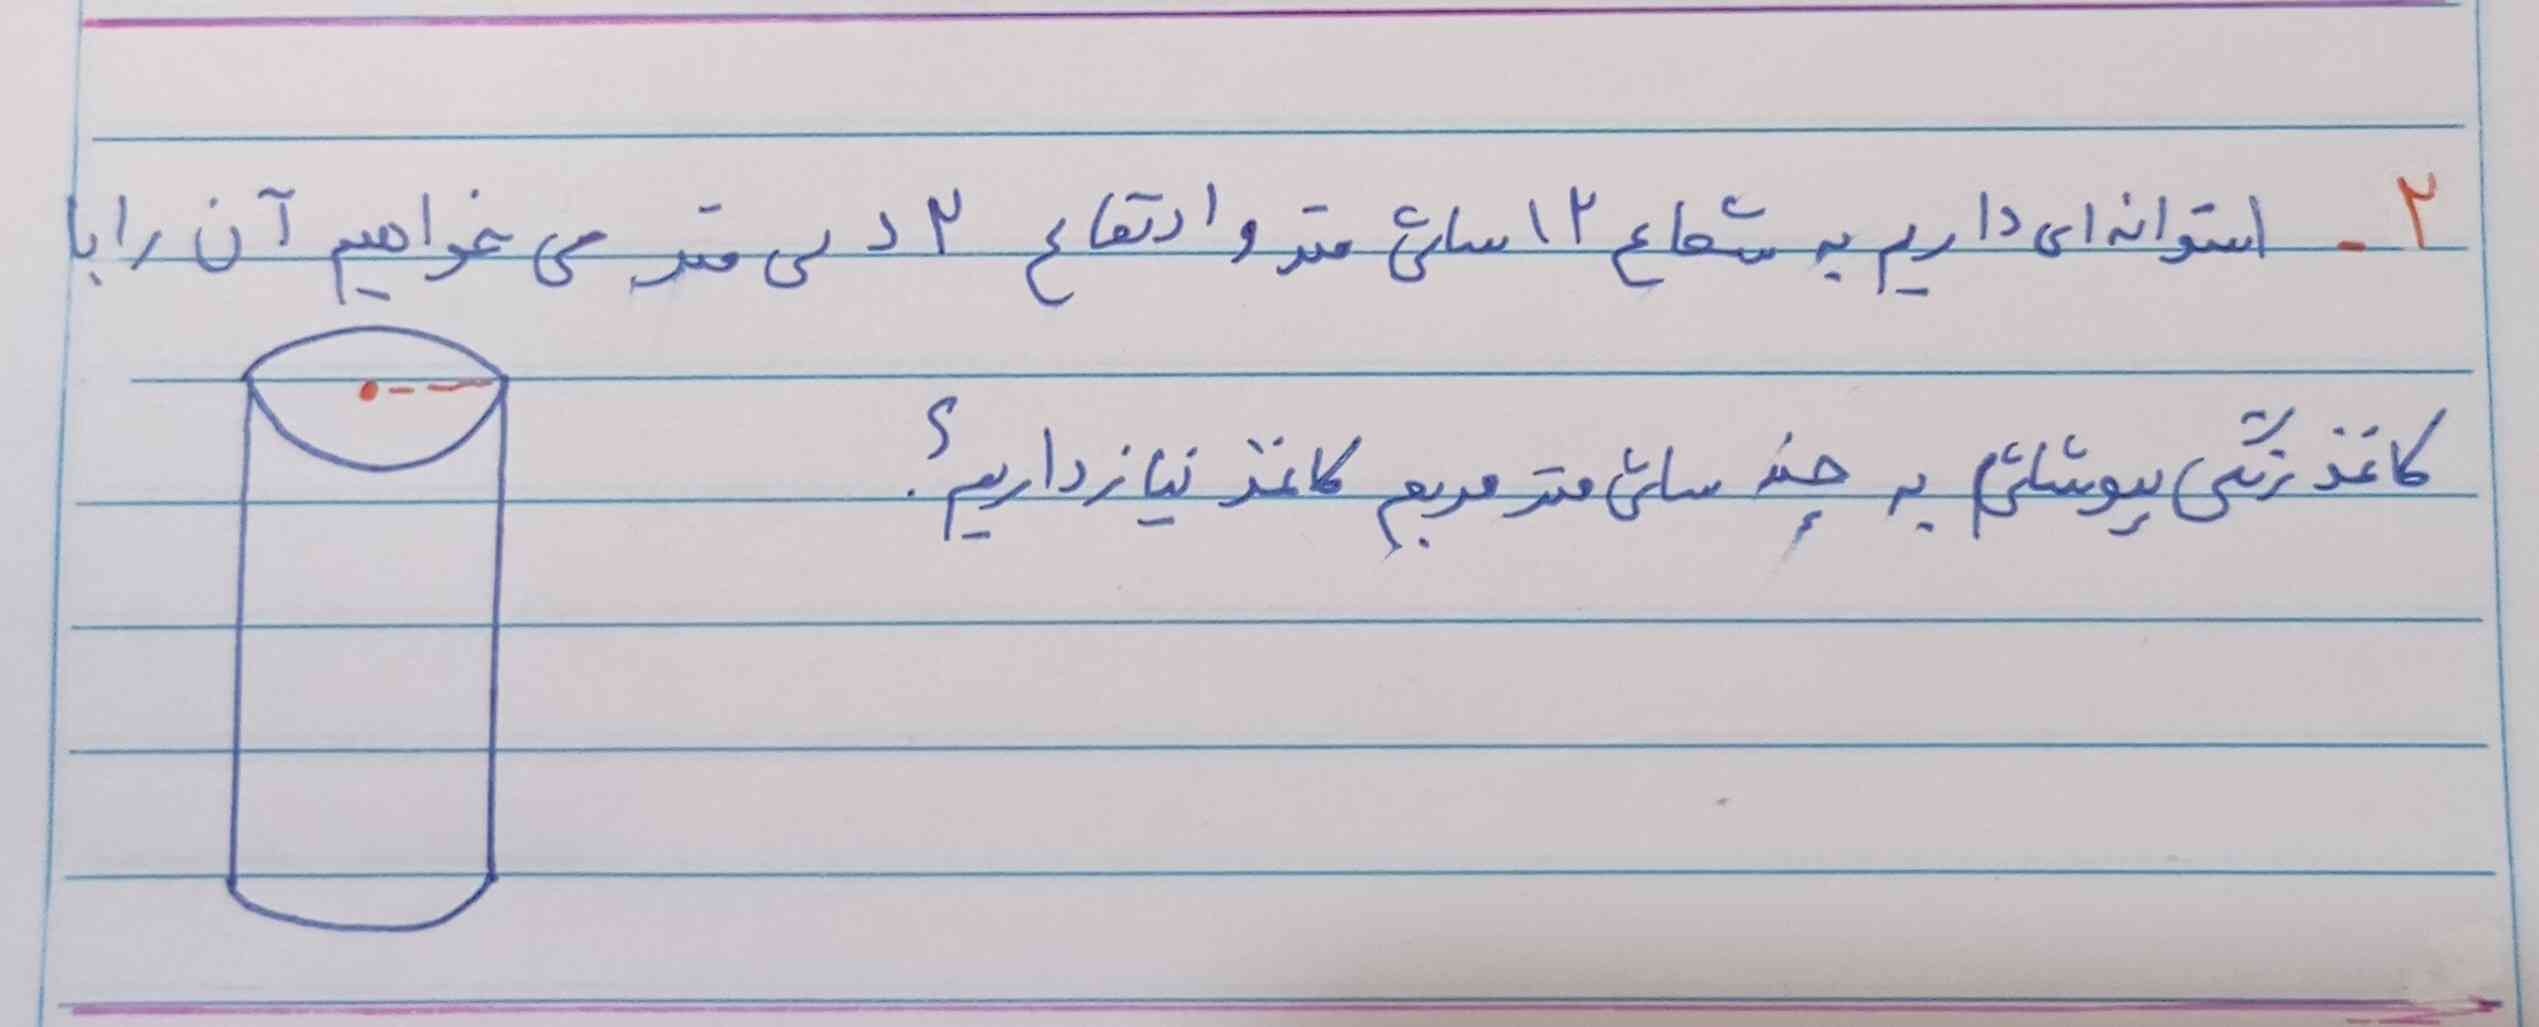 ۲- استوانه‌ای داریم به شعاع ۱۲ سانتی متر و ارتفاع ۲ دسی متر می خواهیم آن را با
کاغذ رنگی بپوشانیم به چند سانتی متر مربع کاغذ نیاز داریم؟